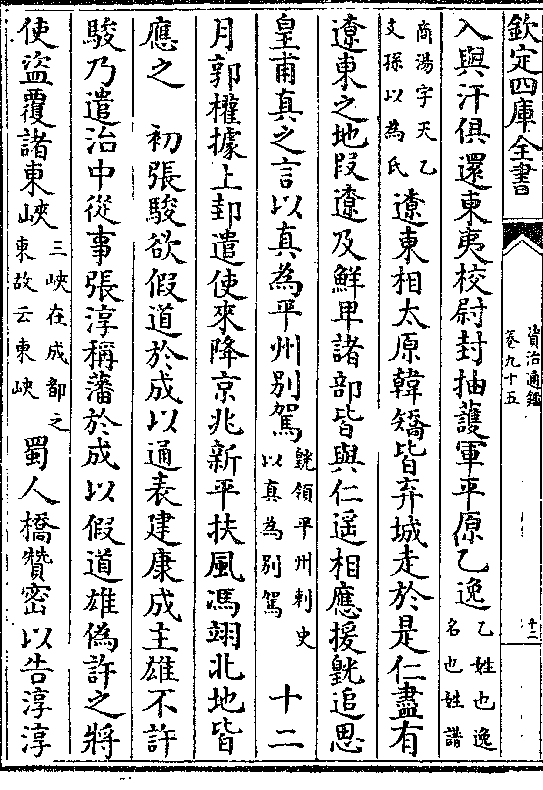 欽定四庫全書
資治通鑑
卷九十五
入與汗俱還東夷校尉封抽護軍平原乙逸乙姓也逸名也姓譜
商湯字天乙支孫以為氏遼東相太原韓矯皆弃城走於是仁盡有
遼東之地段遼及鮮卑諸部皆與仁遥相應援皝追思
皇甫真之言以真為平州别駕皝領平州刺史以真為别駕 十二
月郭權據上邽遣使來降京兆新平扶風馮翊北地皆
應之 初張駿欲假道於成以通表建康成主雄不許
駿乃遣治中從事張淳稱藩於成以假道雄偽許之將
使盜覆諸東峽三峽在成都之東故云東峽蜀人橋贊密以告淳淳